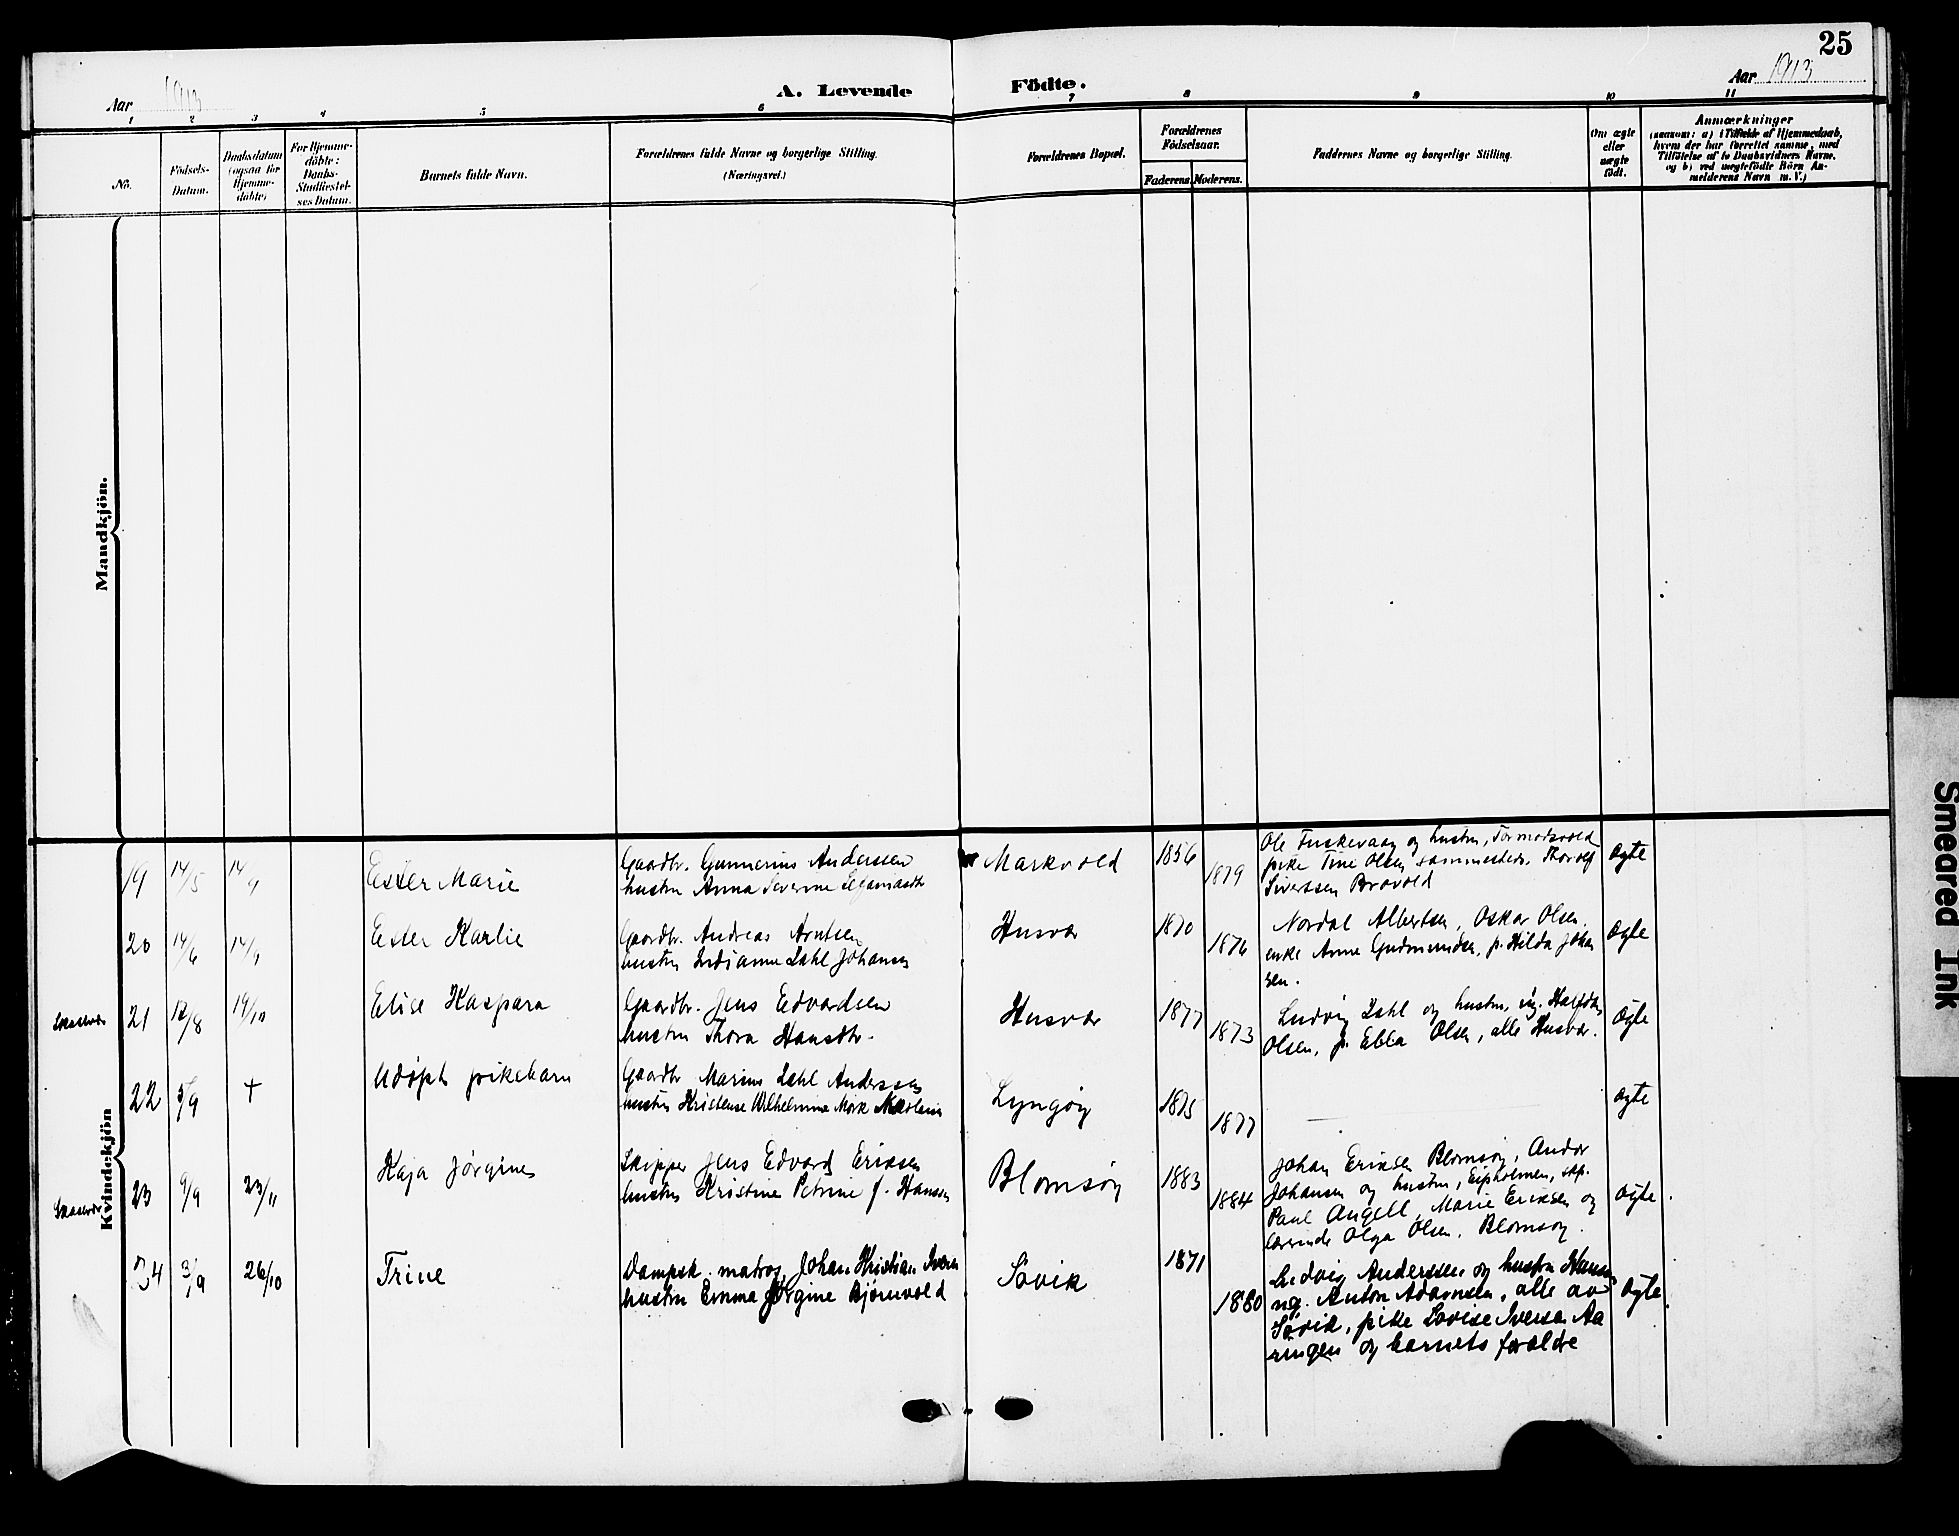 25
Aar 1913
A. Levende Födte.
Aar 1913
1 2 3 4 5 6 7 8 9 10 11
No.
Födsels-
Datum.
Daabsdatum
(ogsaa for
Hjemme-
döbte)
For Hjemme-
döbte:
Daabs-
Stadfæstel-
ses Datum.
Barnets fulde Navn.
Forældrenes fulde Navne og borgerlige Stilling.
(Næringsvei.)
Forældrenes Bopæl.
Forældrenes
Födselsaar.
Faderens. Moderens.
Faddernes Navne og borgerlige Stilling.
Om ægte
eller
uægte
födt.
Anmærkninger
(saasom: a) i Tilfælde af Hjemmedaab,
hvem der har forrettet samme, med
Tilföielse af to Daabsvidners Navne,
og b) ved uægtefödte Börn An-
melderens Navn m. V.)
Mandkjön.
Kvindekjön
19 14/5 14/9 Ester Marie
Gaardbr. Gunnerius Anderssen
hustru Anna Severine
Markvold 1856 1879
Ole Fuskevaag og hustru, Tormodsvold
pike Tine Olsen sammesteds, Thorolf
Sivertsen Brovold
ægte
20 14/6 14/9 Ester Karlie
Gaardbr. Andreas Arntsen
hustru Indianna Dahl Johansen
Husvær 1870 1876
Nordal Albertsen, Oskar Olsen,
enke Anne Gudmundsen, p. Hilda Johan
sen.
ægte
21 12/8 19/10 Elise Kaspara
Gaardbr. Jens Edvardsen
hustru Thora Hansdtr.
Husvær 1877 1873
Ludvig Dahl og hustru, ug. Halfdan
Olsen, p. Ebba Olsen, alle Husvær.
ægte
22 5/9 + Udøpt pikebarn
Gaardbr Marius Dahl Anderssen
hustru Kristense Wilhelmine Mork
Lyngøy 1875 1877
ægte
23 9/9 23/11 Kaja Jørgine
Skipper Jens Edvard Eriksen
hustru Kristine Petrine f. Hansen
Blomsøy 1883 1884
Johan Eriksen Blomsøy, Andor
Johansen og hustru, skp.
Paul Angell, Marie Eriksen og
lærerinde Olga Olsen, Blomsøy.
ægte.
24 3/9 26/10 Trine
Dampsk. matros Johan Kristian Iversen
hustru Emma Jørgine Bjørnvold
Søvik 1871 1880
Ludvig Anderssen og hustru Hansen
ng. Anton Adamsen, alle av
Søvik, pike Lovise Iversen Aa
ringen og barnets forældre
ægte.
Smeared Ink